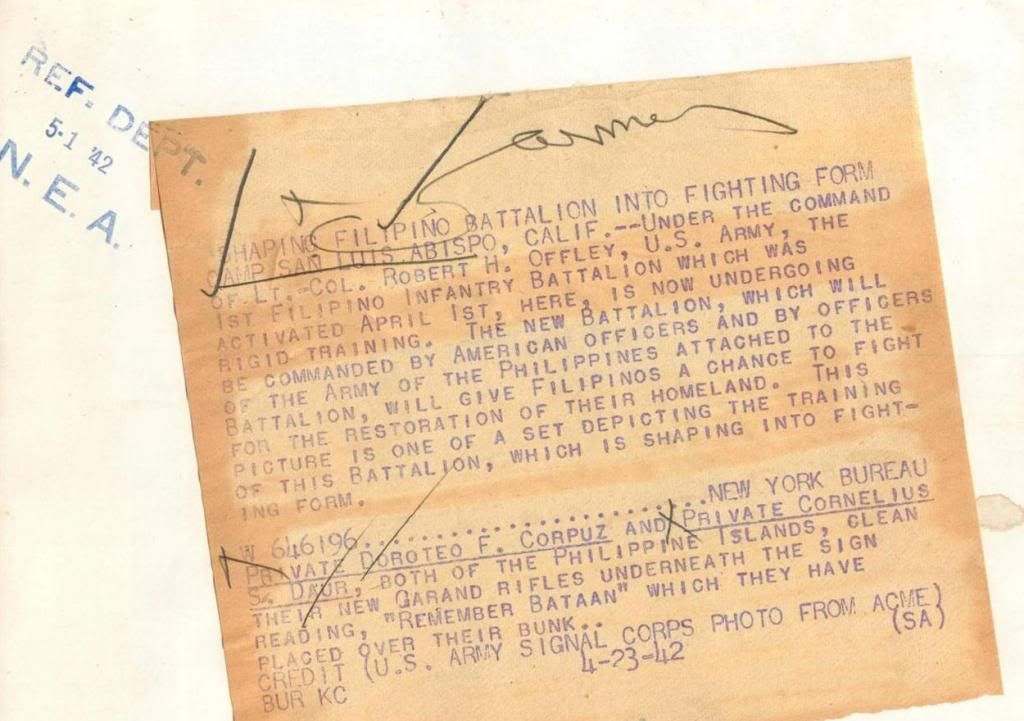 REF. DEPT.
5-1 '42
N. E. A.
Army
SHAPING FILIPINO BATTALION INTO FIGHTING FORM
CAMP SAN LUIS ABISPO, CALIF.--UNDER THE COMMAND
OF LT. COL. ROBERT H. OFFLEY, U.S. ARMY, THE
1ST FILIPINO INFANTRY BATTALION WHICH WAS
ACTIVATED APRIL 1ST, HERE, IS NOW UNDERGOING
RIGID TRAINING. THE NEW BATTALION, WHICH WILL
BE COMMANDED BY AMERICAN OFFICERS AND BY OFFICERS
OF THE ARMY OF THE PHILIPPINES ATTACHED TO THE
BATTALION, WILL GIVE FILIPINOS A CHANCE TO FIGHT
FOR THE RESTORATION OF THEIR HOMELAND. THIS
PICTURE IS ONE OF A SET DEPICTING THE TRAINING
OF THIS BATTALION, WHICH IS SHAPING INTO FIGHT-
ING FORM.
W 646196..............................NEW YORK BUREAU
PRIVATE DOROTEO F. CORPUZ AND PRIVATE CORNELIUS
S. DAUR, BOTH OF THE PHILIPPINE ISLANDS, CLEAN
THEIR NEW GARAND RIFLES UNDERNEATH THE SIGN
READING, "REMEMBER BATAAN" WHICH THEY HAVE
PLACED OVER THEIR BUNK..
CREDIT (U.S. ARMY SIGNAL CORPS PHOTO FROM ACME)
BUR KC 4-23-42 (SA)